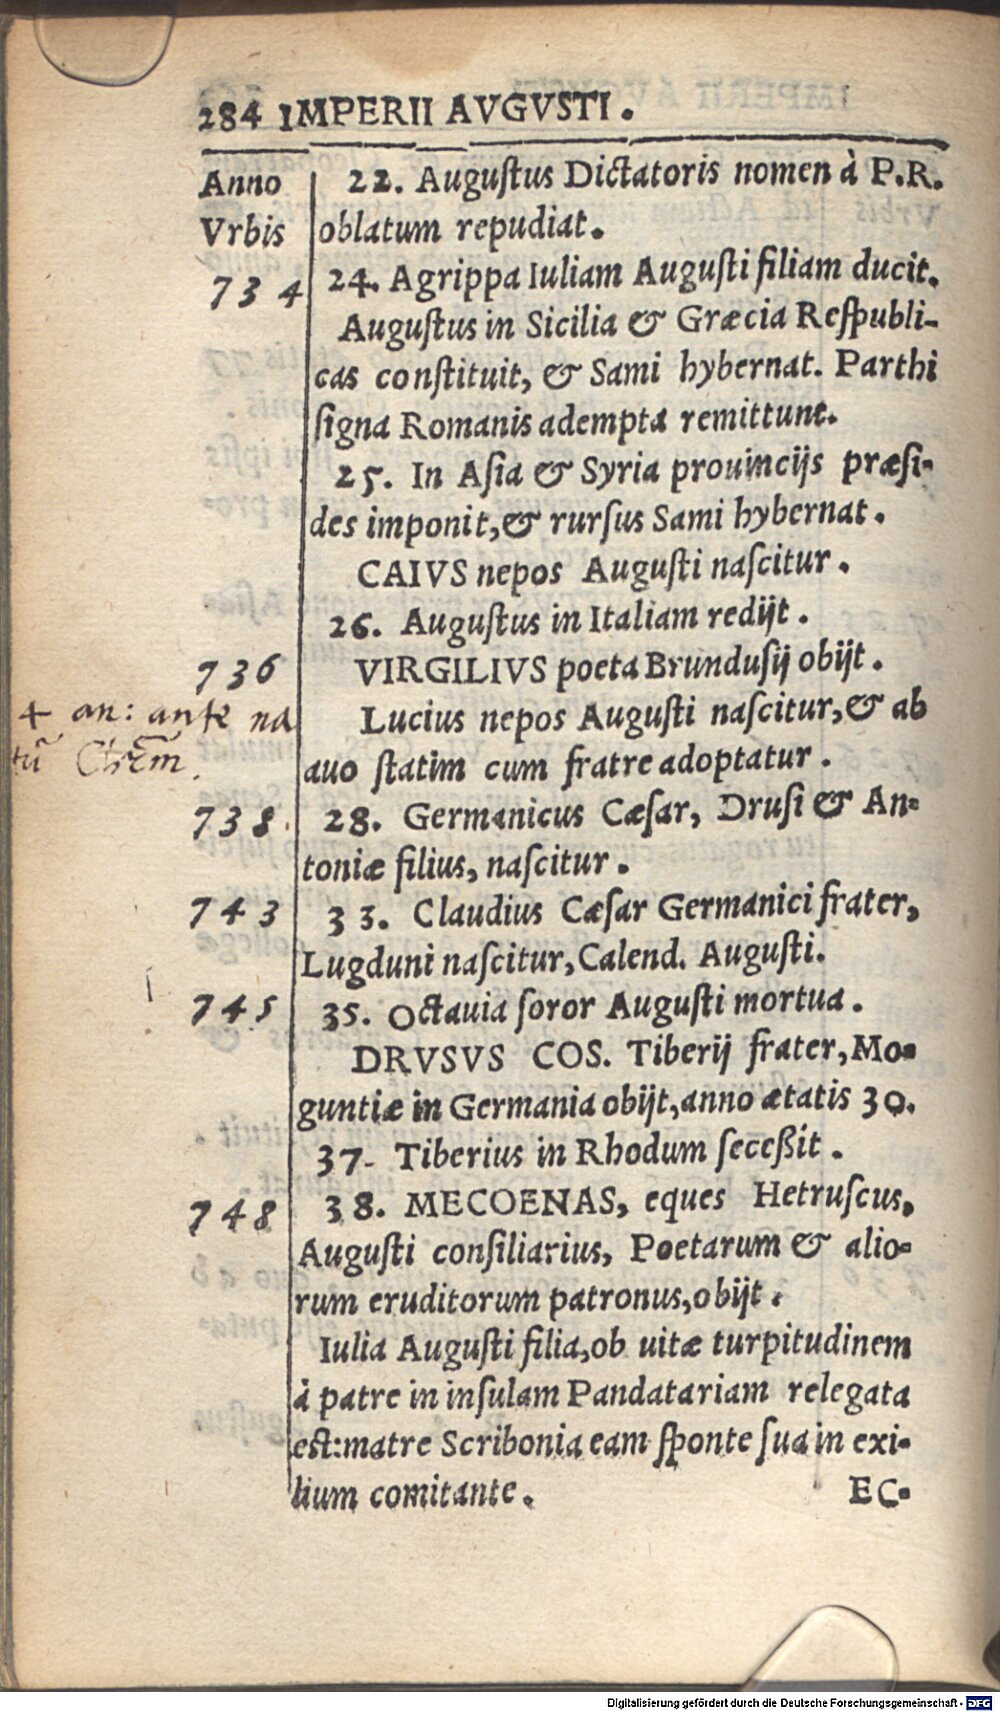 284 IMPERII AVGVSTI.
Anno 22. Auguſtus Dictatoris nomen à P.R.
Vrbis oblatum repudiat.
734 24. Agrippa Iuliam Auguſti filiam ducit.
Auguſtus in Sicilia & Græcia Reſpubli-
cas conſtituit, & Sami hybernat. Parthi
ſigna Romanis adempta remittunt.
25. In Aſia & Syria prouincijs præſi-
des imponit, & rurſus Sami hybernat.
CAIVS nepos Auguſti naſcitur.
26. Auguſtus in Italiam redijt.
736 VIRGILIVS poeta Brunduſij obijt.
an: ante na Lucius nepos Auguſti naſcitur, & ab
tū auo ſtatim cum fratre adoptatur.
738. 28. Germanicus Cæſar, Druſi & An-
toniæ filius, naſcitur.
743 33. Claudius Cæſar Germanici frater,
Lugduni naſcitur, Calend. Auguſti.
745 35. Octauia ſoror Auguſti mortua.
DRVSVS COS. Tiberij frater, Mo-
guntiæ in Germania obijt, anno ætatis 30.
37. Tiberius in Rhodum ſeceßit.
748 38. MECOENAS, eques Hetruſcus,
Auguſti conſiliarius, Poetarum & alio-
rum eruditorum patronus, obijt.
Iulia Auguſti filia, ob uitæ turpitudinem
à patre in inſulam Pandatariam relegata
est: matre Scribonia eam ſponte ſua in exi-
lium comitante. EC-
Digitalisierung gefördert durch die Deutsche Forschungsgemeinschaft - DFG